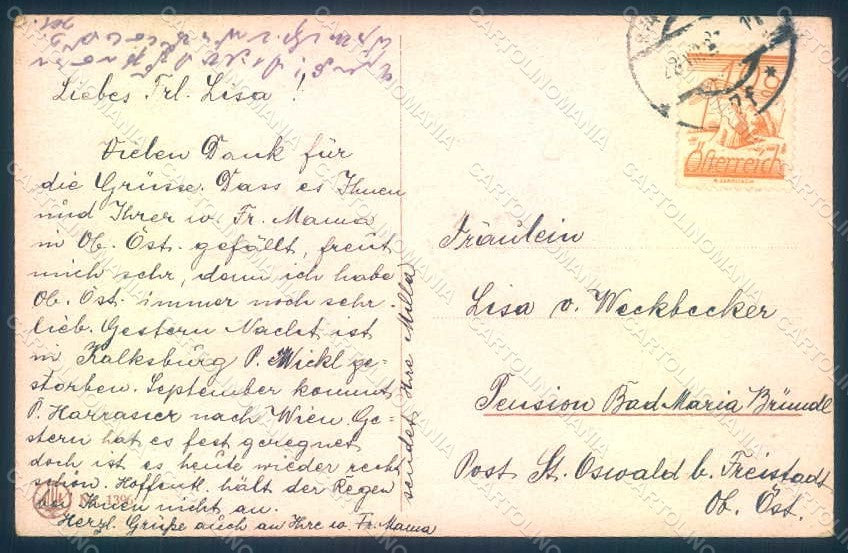 Liebes Frl. Lisa!
Vielen Dank für
die Grüsse. Dass es Ihnen
und Ihrer w. Fr. Mama
in Ob. Öst. gefällt, freut
mich sehr, denn ich habe
Ob. Öst. immer noch sehr
lieb. Gestern Nacht ist
in Kalksburg P. Wickl ge=
storben. September kommt
P. Harrasser nach Wien. Ge=
stern hat es fest geregnet
doch ist es heute wieder recht
schön. Hoffentl. hält der Regen
bei Ihnen nicht an.
Herzl. Grüße auch an Ihre w. Fr. Mama
sendet Ihre Milla
1396
Österreich
Fräulein
Lisa v. Weckbecker
Pension Bad Maria Bründl
Post St. Oswald b. Freistadt
Ob. Öst.
CARTOLINOMANIA